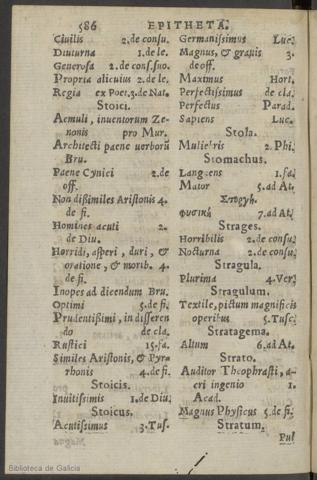 586 EPITHETA.
Ciuilis 2.de consu.
Diuturna 1.de le.
Generosa 2.de cons.suo.
Propria alicuius 2.de le.
Regia ex Poet.3.de Nat.
Stoici.
Aemuli, inuentorum Ze-
nonis pro Mur.
Architecti paene uerborũ
Bru.
Paene Cynici 2.de
off.
Non dißimiles Aristonis 4.
de fi.
Homines acuti 2.
de Diu.
Horridi, asperi, duri, &
oratione, & morib. 4.
de fi.
Inopes ad dicendum Bru.
Optimi 5.de fi.
Prudentißimi, in disseren
do de cla.
Rustici 15.fa.
Similes Aristonis, & Pyr-
rhonis 4.de fi.
Stoicis.
Inuitissimis 1.de Diu.
Stoicus.
Acutissimus 3.Tus.
Germanissimus Luc.
Magnus, & grauis 3.
de off.
Maximus Hort.
Perfectissimus de cla.
Perfectus Parad.
Sapiens Luc.
Stola.
Muliebris 2. Phi.
Stomachus.
Languens 1.fa.
Maior 5.ad At.
Στοργή.
φυσική 7.ad At.
Strages.
Horribilis 2.de consu.
Nocturna 2.de consu.
Stragula.
Plurima 4.Ver.
Stragulum.
Textile, pictum magnificis
operibus 5.Tusc.
Stratagema.
Altum 6.ad At.
Strato.
Auditor Theophrasti, a-
cri ingenio 1.
Acad.
Magnus Physicus 5.de fi.
Stratum.
Pul
Biblioteca de Galicia